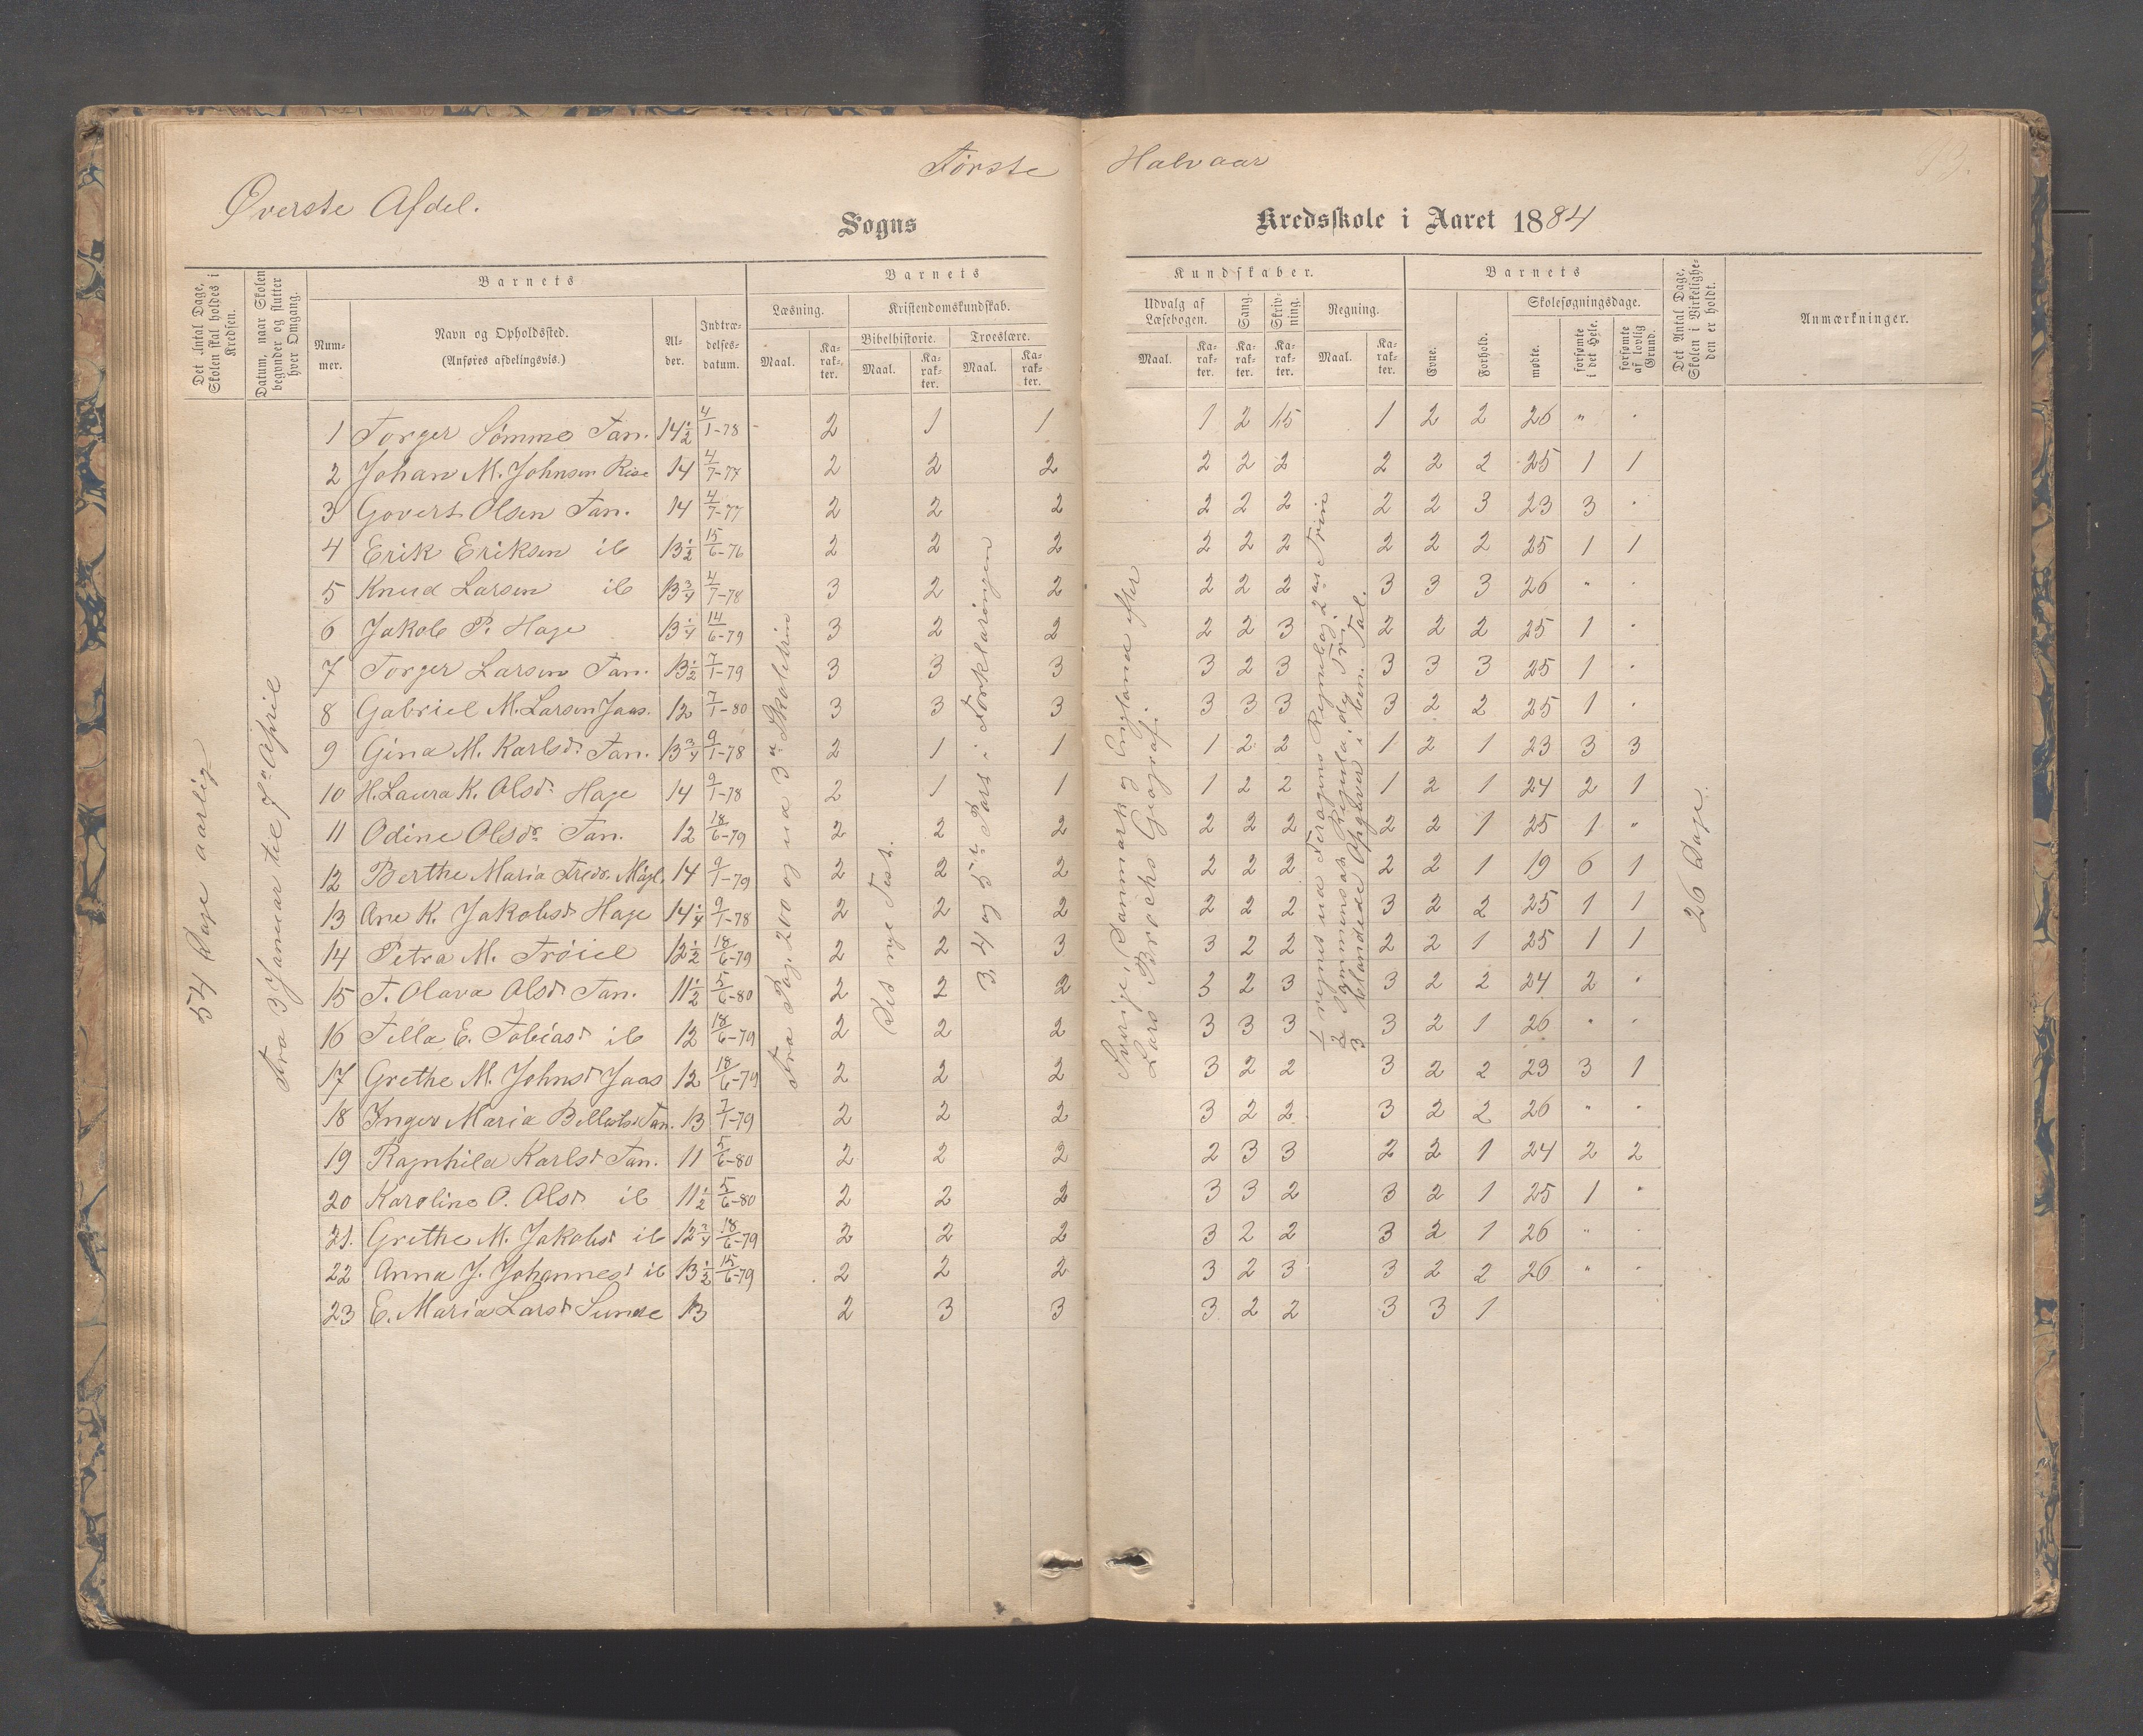 Første Halvaar
Øverste Afdel.
Sogns Kredsskole i Aaret 1884
Det Antal Dage, Skolen skal holdes i Kredsen.
Datum, naar Skolen begynder og slutter hver Omgang.
Barnets
Nummer.
Navn og Opholdssted. (Anføres afdelingsvis.)
Alder.
Indtrædelsesdatum.
Barnets Kundskaber.
Læsning.
Maal.
Karakter.
Kristendomskundskab.
Bibelhistorie.
Maal.
Karakter.
Troeslære.
Maal.
Karakter.
Udvalg af Læsebogen.
Maal.
Karakter.
Sang.
Karakter.
Skrivning.
Karakter.
Regning.
Maal.
Karakter.
Barnets
Evne.
Forhold.
Skolesøgningsdage.
mødte.
forsømte i det Hele.
forsømte af lovlig Grund.
Det Antal Dage, Skolen i Virkeligheden er holdt.
Anmærkninger.
54 Dage aarlig
Fra 3 Januar til 7de April
Fra Pag. 200 og ud 3die Skoletrin
Det nye Test.
3, 4 og 5te Part i Forklaringen
Sverige, Danmark og England efter
Lars Brochs Geografi.
26 Dage.
1 Torger Sømme Tan. 14½ 4/1-78 2 1 1 1 2 1,5 1 2 2 26 " "
2 Johan M. Johnsen Rise 14 4/7-77 2 2 2 2 2 2 2 2 2 25 1 1
3 Govert Olsen Tan. 14 4/7-77 2 2 2 2 2 2 2 2 3 23 3 "
4 Erik Eriksen ib 13½ 15/6-76 2 2 2 2 2 2 2 2 2 25 1 1
5 Knud Larsen ib 13¾ 4/7-78 3 2 2 2 2 2 3 3 3 26 " "
6 Jakob P. Hage 13¼ 14/6-79 3 2 2 2 2 3 2 2 2 25 1 "
7 Torger Larsen Tan. 13½ 7/1-79 3 3 3 3 2 3 3 3 3 25 1 "
8 Gabriel M. Larsen Jaas. 12 7/1-80 3 3 3 3 3 3 3 2 2 25 1 "
9 Gina M. Karlsdr Tan. 13¾ 9/1-78 2 1 1 1 2 2 1 2 1 23 3 3
10 H. Laura K. Olsdr Hage 14 9/1-78 2 1 1 1 2 2 1 2 1 24 2 1
11 Odine Olsdr Tan. 12 18/6-79 2 2 2 2 2 2 2 2 1 25 1 "
12 Berthe Maria Fredr. Mógl. 14 9/1-79 2 2 2 2 2 2 2 2 1 19 6 1
13 Ane K. Jakobsdr Hage 14¼ 9/1-78 2 2 2 2 2 2 3 2 2 25 1 1
14 Petra M. Trøiel 12½ 18/6-79 2 2 3 3 2 2 2 2 1 25 1 1
15 T. Olava Olsdr Tan. 11½ 5/6-80 2 2 2 3 2 3 3 2 2 24 2 "
16 Tilla E. Tobiasdr ib 12 18/6-79 2 2 2 3 3 3 3 2 1 26 " "
17 Grethe M. Johnsdr Jaas 12 18/6-79 2 2 2 3 2 2 3 2 2 23 3 1
18 Inger Maria Tan. 13 7/1-79 2 2 2 3 2 2 3 2 2 26 " "
19 Ragnhild Karlsdr Tan. 11 5/6-80 2 2 2 2 3 3 2 2 1 24 2 2
20 Karoline O. Olsdr ib 11½ 5/6-80 2 2 2 3 3 2 3 2 1 25 1 "
21. Grethe M. Jakobsdr ib 12¾ 18/6-79 2 2 2 3 2 2 3 2 1 26 " "
22 Anna J. Johannesdr ib 13½ 15/6-79 2 2 2 3 2 3 3 2 2 26 " "
23 E. Maria Larsdr Sunde 13 2 3 3 3 2 2 3 3 1